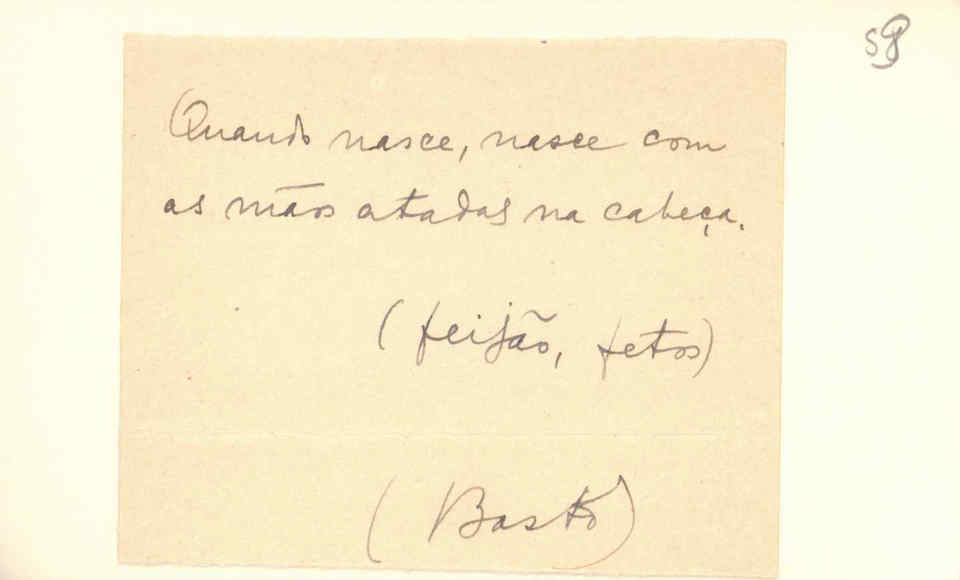 Quando nasce, nasce com
as mãos atadas na cabeça.
(feijão, fetos)
(Basto)